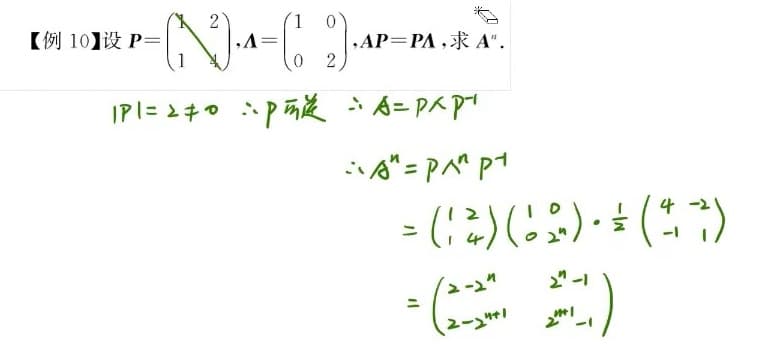 【例 10】设 P=(1 2; 1 4),Λ=(1 0; 0 2),AP=PΛ,求 Aⁿ.
|P|=2≠0 ∴P可逆 ∴A=PΛP⁻¹
∴Aⁿ=PΛⁿP⁻¹
=(1 2; 1 4)(1 0; 0 2ⁿ)·1/2(4 -2; -1 1)
=(2-2ⁿ 2ⁿ-1; 2-2ⁿ⁺¹ 2ⁿ⁺¹-1)